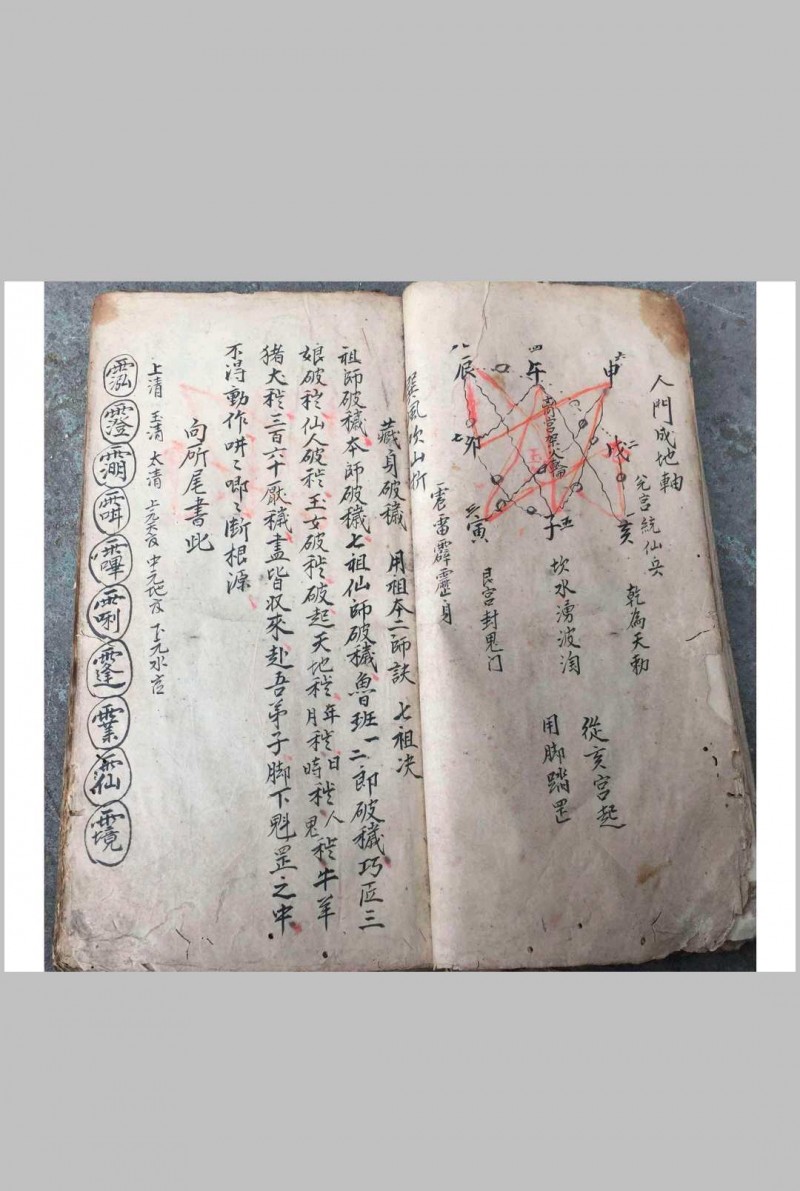 人門成地軸
兌宮統仙兵
乾為天動
六申
二戌
一亥
四午
五子
離宮架火輪
坎水湧波淘
從亥宮起
用脚踏罡
八辰
七卯
三寅
艮宮封鬼门
震雷霹靂身
巽風吹山折
藏身破穢 用祖本二師訣 七祖决
祖師破穢本師破穢七祖仙師破穢魯班一二郎破穢巧匠三
娘破秽仙人破秽玉女破秽破起天地秽年秽日
月秽時秽鬼秽人秽牛羊
猪犬秽三百六十厭穢盡皆収來赴吾弟子脚下魁罡之中
不得動作吽〻唧〻断根源
向所尾書此
上清 玉清 太清 上元天官 中元地官 下元水官